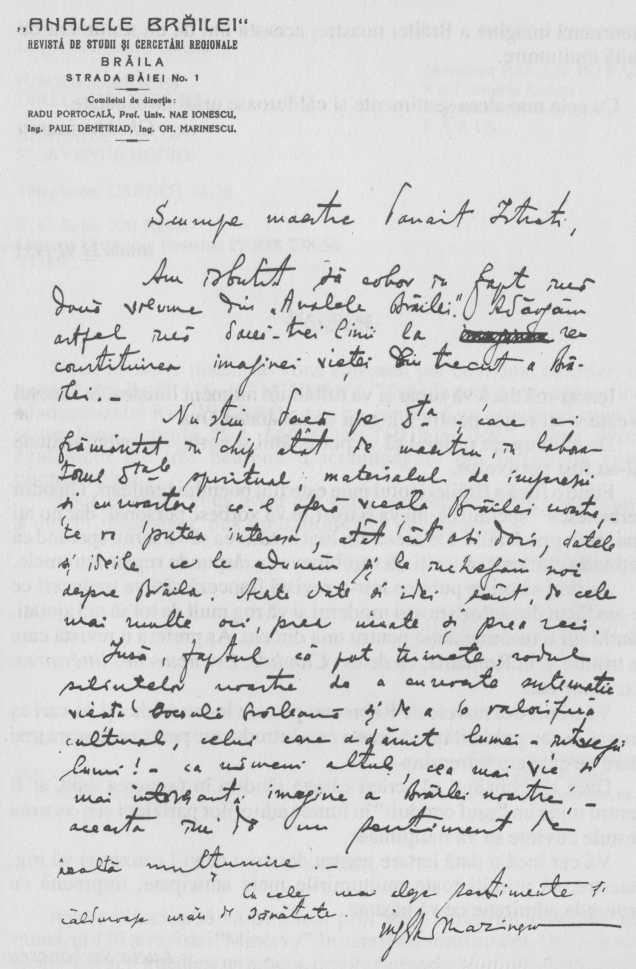 „ANALELE BRĂILEI"
REVISTĂ DE STUDII ŞI CERCETĂRI REGIONALE
BRĂILA
STRADA BĂIEI No. 1
Comitetul de direcţie:
RADU PORTOCALĂ, Prof. Univ. NAE IONESCU,
Ing. PAUL DEMETRIAD, Ing. GH. MARINESCU.
Scumpe maestre Panait Istrati,
Am isbutit să cobor în fapt încă
două volume din „Analele Brăilei". Adăogăm
astfel încă două-trei linii la re
constituirea imaginei vieţei din trecut Bră
ilei. —
Nu ştiu dacă pe Dta, care a-
frământat în chip atât de maestru, în labora
torul spiritual, materialul de impresii
şi cunoaştere ce-i oferă viaţa Brăilei noastre,
te va putea interesa, atât cât aşi dori, datele
şi ideile ce le adună şi le
despre Brăila. Aceste date şi idei sunt de cele
mai multe ori prea uzuale şi prea reci.
Însă, faptul că pot trimete, rodul
silinţelor noastre de a cunoaşte sistematic
viaţa locului brăilean şi de a o valorifica
cultural, celui care a dăruit lumei - întregei
lumi! - ca nimeni altul, cea mai vie şi
mai colorată imagine a Brăilei noastre -
aceasta îmi dă un sentiment de
înaltă mulţumire. —
Cu cele alese sentimente şi
călduroase urări de sănătate
Ing Gh. Marinescu